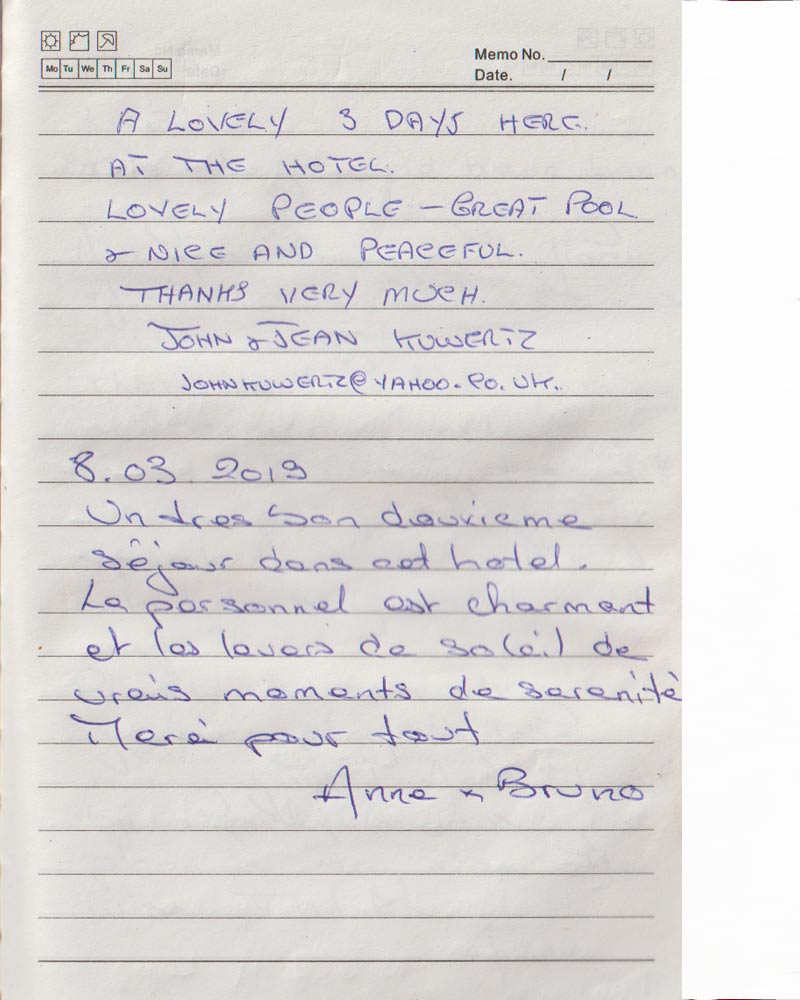 Memo No.
Mo Tu We Th Fr Sa Su
Date. / /
A LOVELY 3 DAYS HERE.
AT THE HOTEL.
LOVELY PEOPLE – GREAT POOL
& NICE AND PEACEFUL.
THANKS VERY MUCH.
JOHN & JEAN KUWERTZ
JOHNKUWERTZ@YAHOO.CO.UK..
8.03.2019
Un tres bon deuxieme
séjour dans cet hotel.
Le personnel est charmant
et les levers de soleil de
vrais moments de serenité
Merci pour tout
Anne & Bruno